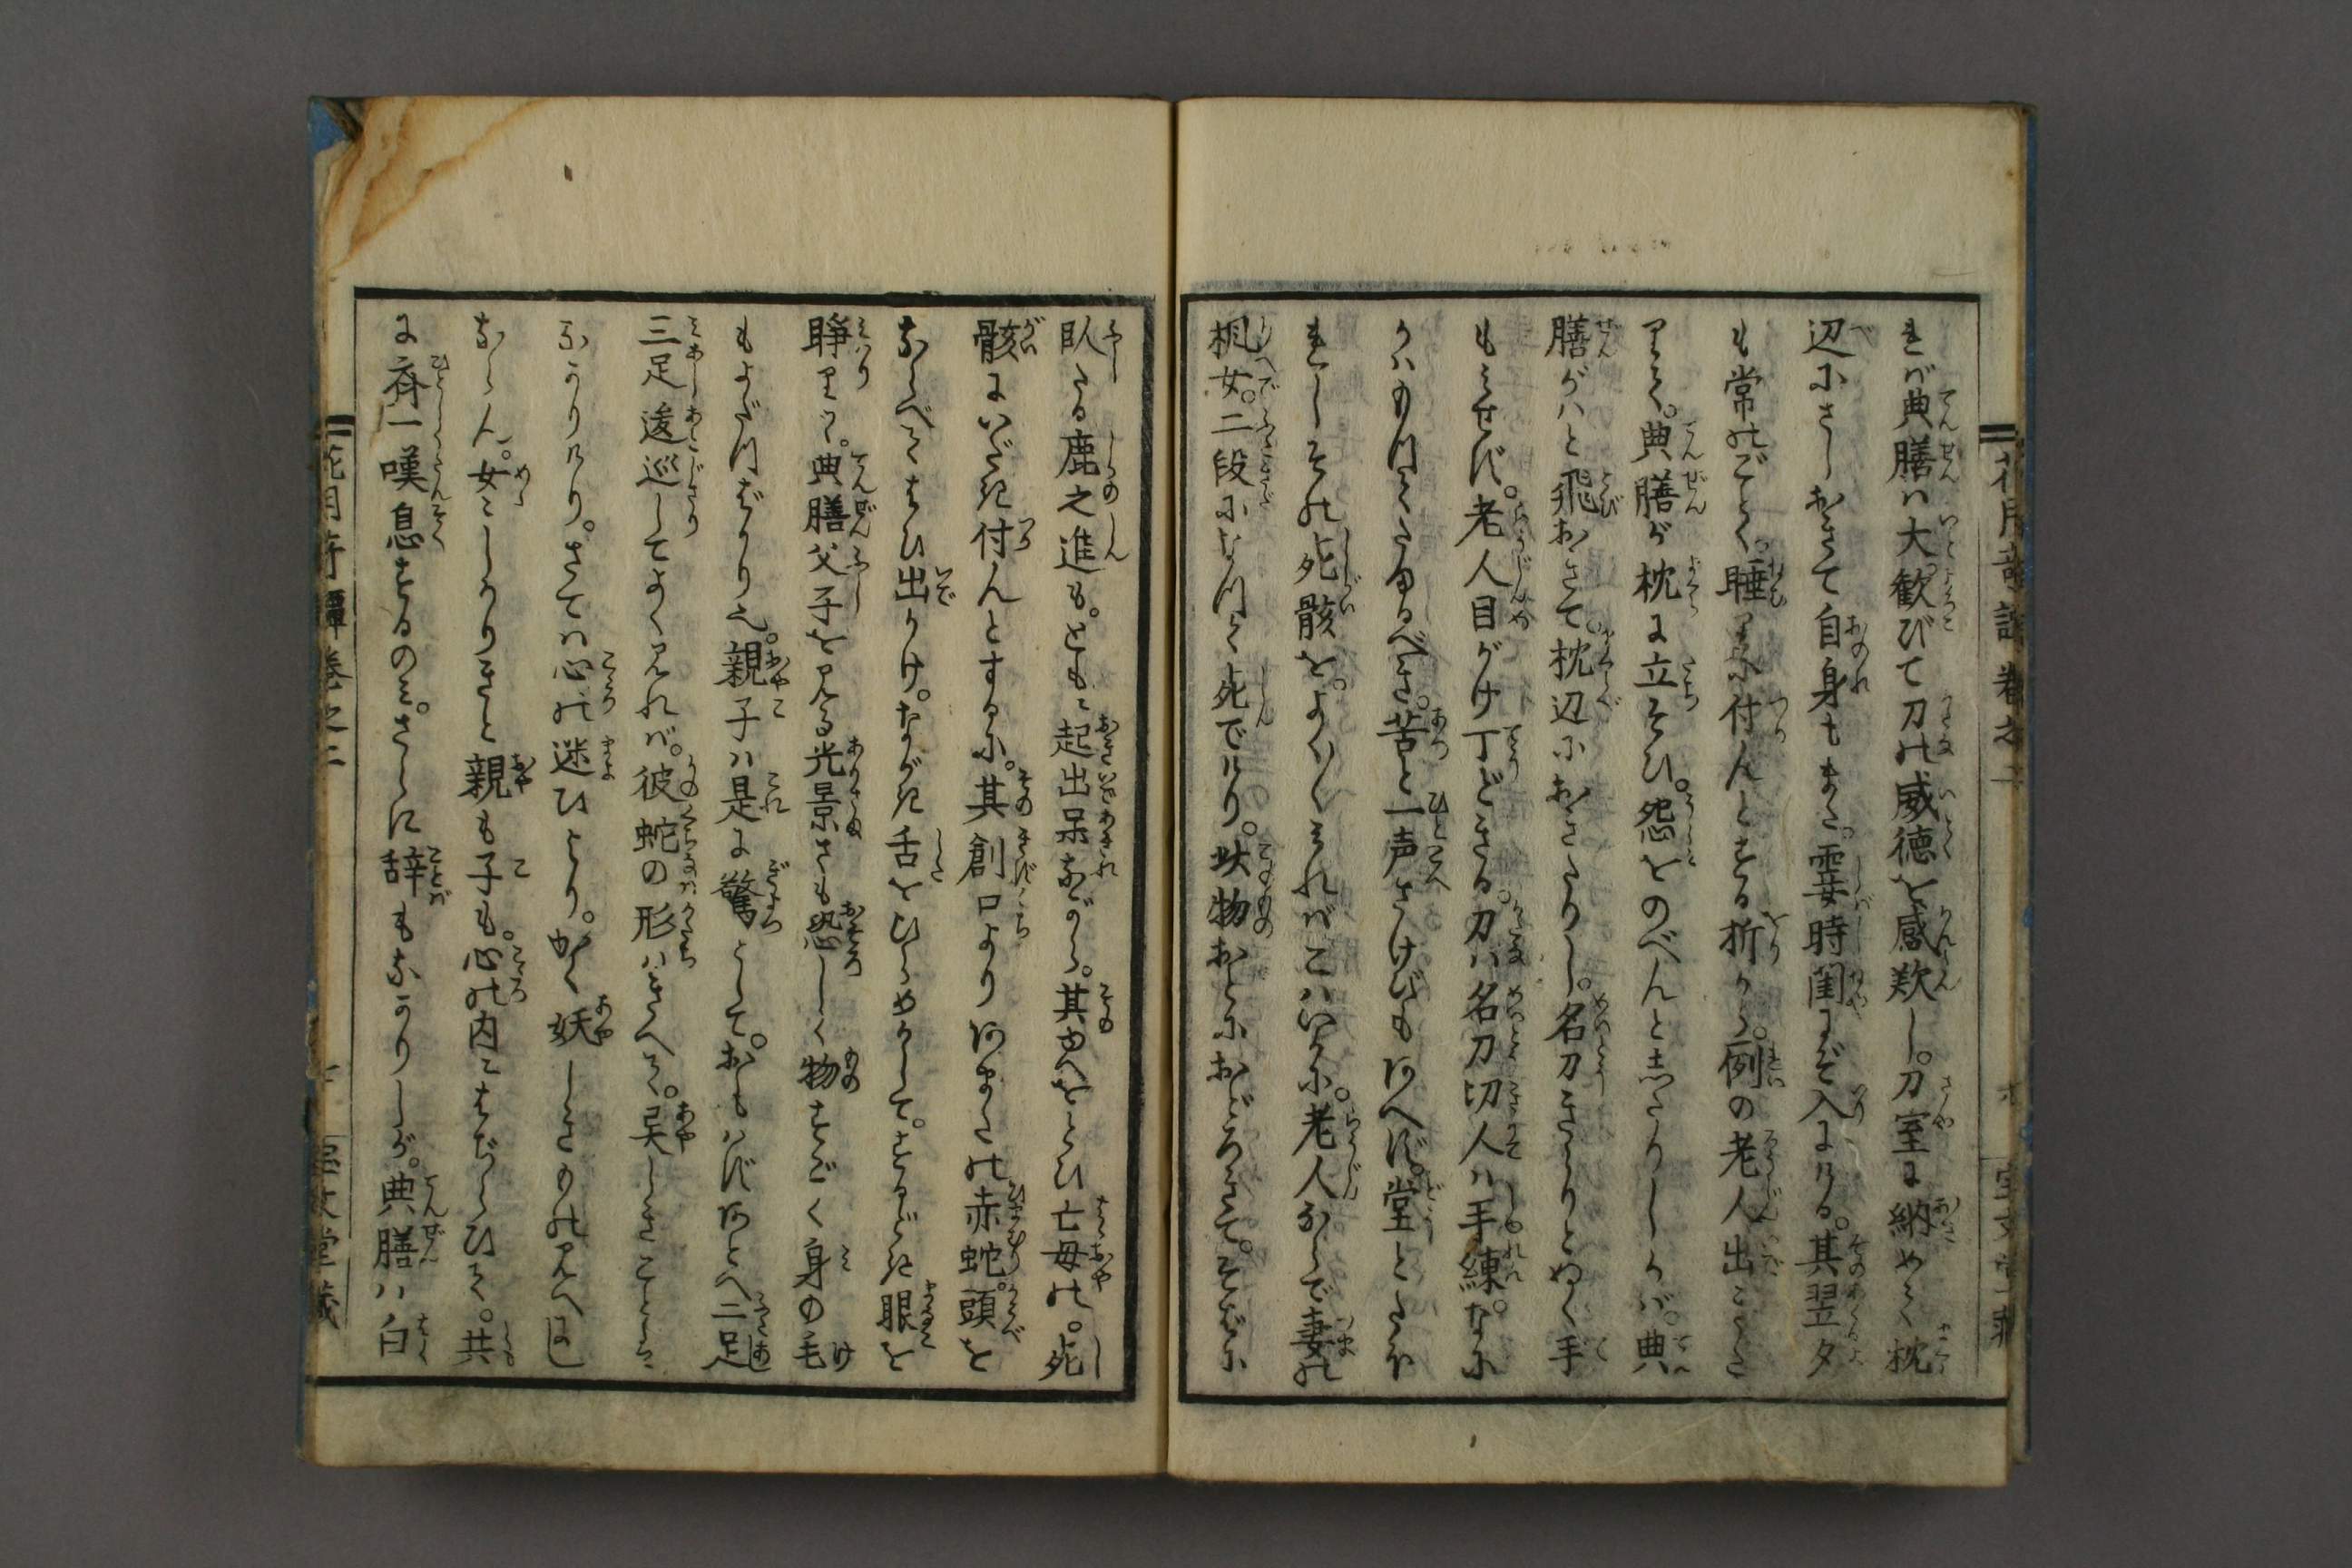 れバ典膳ハ大歓びて刀の威徳を感歎し。刀室に納めて枕
辺にさしおきて自身もまた。霎時閨にぞ入にける。其翌夕
も常のごとく睡りに付んとする折から。例の老人出きたり
りて。典膳が枕に立そひ。怨をのべんと志たりしかバ。典
膳がハと飛おきて。枕辺におきたりし。名刀きらりとぬく手
もみせず。老人目がけ丁どきる。刀ハ名刀切人ハ手練。なに
かハもつてたまるべき。苦と一声さけびもあへず。堂とたふ
れしその死骸を。よく〱みればこハいかに。老人ならで妻の
桐女。二段になつて死でけり。此物おとにおどろきて。そばに
臥たる鹿之進も。ともに起出呆ながら。其ゆへをとひ亡母の。死
骸にいだき付んとするに。其創口よりあまたの赤蛇。頭を
ならべてはひ出かけ。ながき舌をひらめかして。するどき眼を
睜りて。典膳父子を見る光景さも恐しく物すごく身の毛
もよだつばかり也。親子ハ是に驚きとして。おもはずあとへ二足
三足逡巡してよく見れバ。彼蛇の形ハきへて。異しきことさら
になかりけり。さてハ心の迷ひより。かく妖しきものの見へにし
ならん。女々しかりきと親も子も。心の内にはぢらひて。共
に斉一嘆息するのミ。さらに辞もなかりしが。典膳ハ白
花月奇譚巻之二
宝文堂蔵